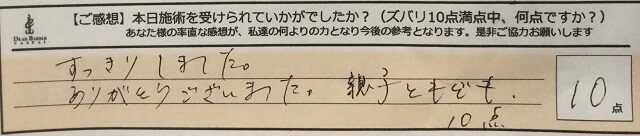 【ご感想】本日施術を受けられていかがでしたか？（ズバリ10点満点中、何点ですか？）
あなた様の率直な感想が、私達の何よりの力となり今後の参考となります。是非ご協力お願いします
DEAR BARBER
CASUAL
すっきりしました。
ありがとうございました。親子ともども.
10点
10点